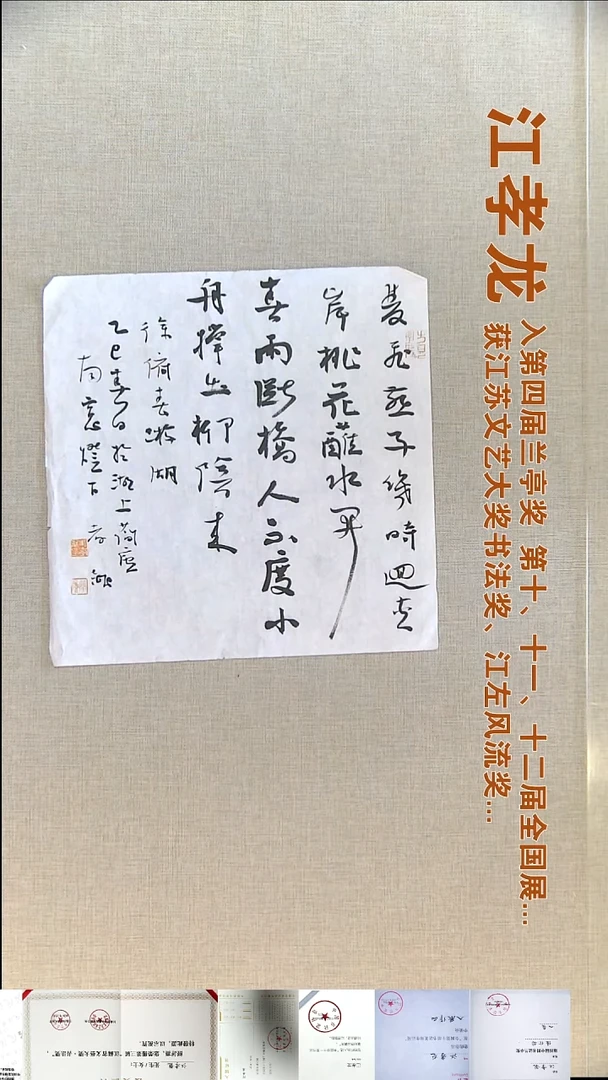 江孝龙
入第四届兰亭奖 第十、十一、十二届全国展...
获江苏文艺大奖书法奖、江左风流奖...
雙飛燕子幾時迴夾
岸桃花蘸水開
春雨断橋人不度小
舟撑出柳陰来
徐俯春游湖
乙巳春日於湖上
南窓燈下 孝